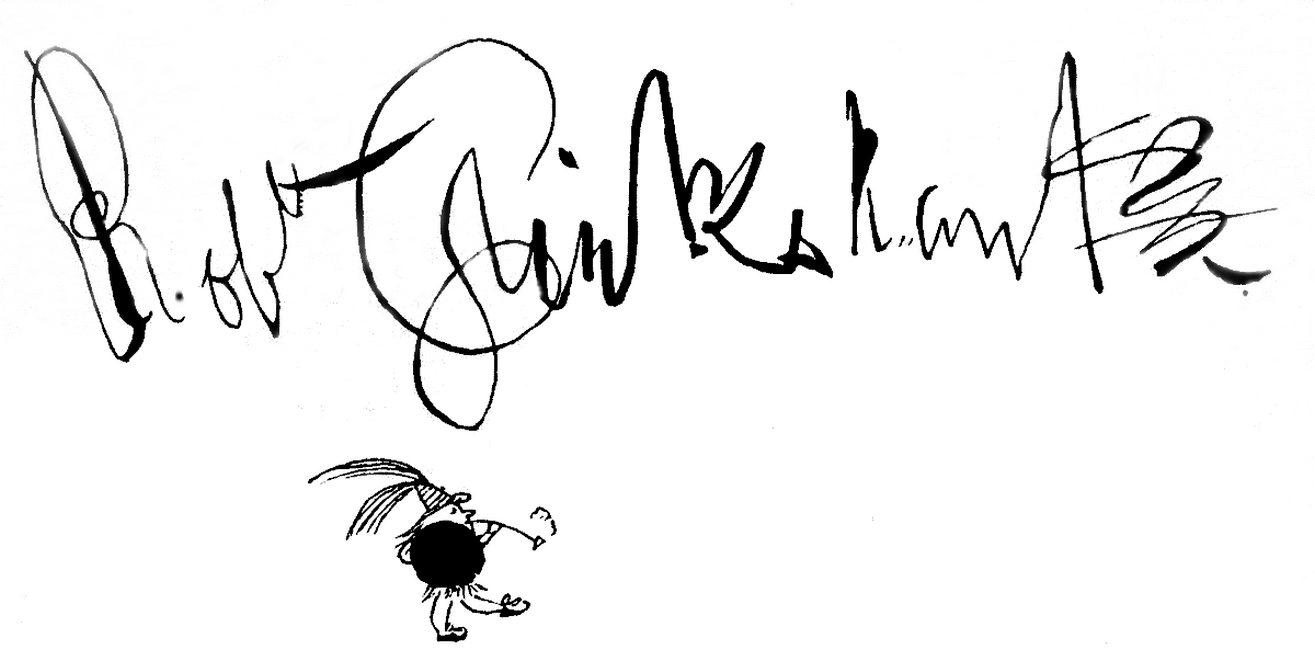 Robt Cruikshank